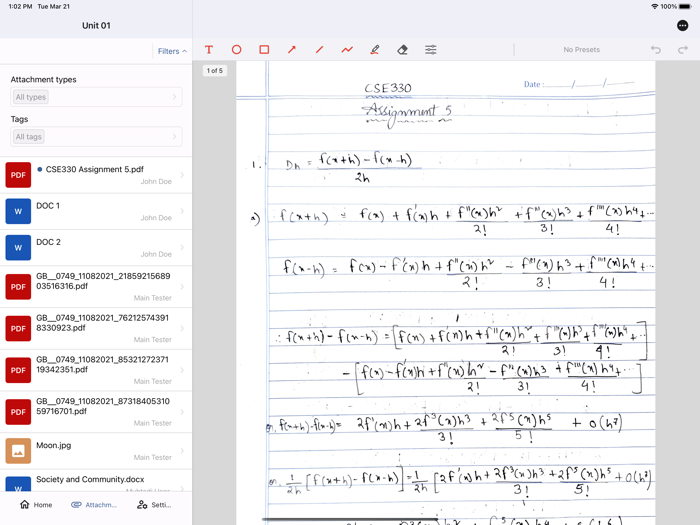 1:02 PM Tue Mar 21
100%
Unit 01
Filters
Attachment types
All types
Tags
All tags
PDF
CSE330 Assignment 5.pdf
John Doe
W
DOC 1
John Doe
W
DOC 2
John Doe
PDF
GB__0749_11082021_21859215689
03516316.pdf
Main Tester
PDF
GB__0749_11082021_76212574391
8330923.pdf
Main Tester
PDF
GB__0749_11082021_85321272371
19342351.pdf
Main Tester
PDF
GB__0749_11082021_87318405310
59716701.pdf
Main Tester
Moon.jpg
Main Tester
W
Society and Community.docx
Home
Attachm...
Setti...
T
No Presets
1 of 5
CSE330
Date : __/__/__
Assignment 5
1. Dh = f(x+h) - f(x-h)
2h
a) f(x+h) = f(x) + f'(x)h + f''(x)h² + f'''(x)h³ + f''''(x)h⁴ + ...
2! 3! 4!
f(x-h) = f(x) - f'(x)h + f''(x)h² - f'''(x)h³ + f''''(x)h⁴ + ...
2! 3! 4!
∴ f(x+h) - f(x-h) = [f(x) + f'(x)h + f''(x)h² + f'''(x)h³ + f''''(x)h⁴ + ...]
2! 3! 4!
- [f(x) - f'(x)h + f''(x)h² - f'''(x)h³ + f''''(x)h⁴ + ...]
2! 3! 4!
or, f(x+h) - f(x-h) = 2f'(x)h + 2f³(x)h³ + 2f⁵(x)h⁵ + O(h⁷)
3! 5!
or, 1 [f(x+h) - f(x-h)] = 1 [2f'(x)h + 2f³(x)h³ + 2f⁵(x)h⁵ + O(h⁷)
2h 2h 3! 5!